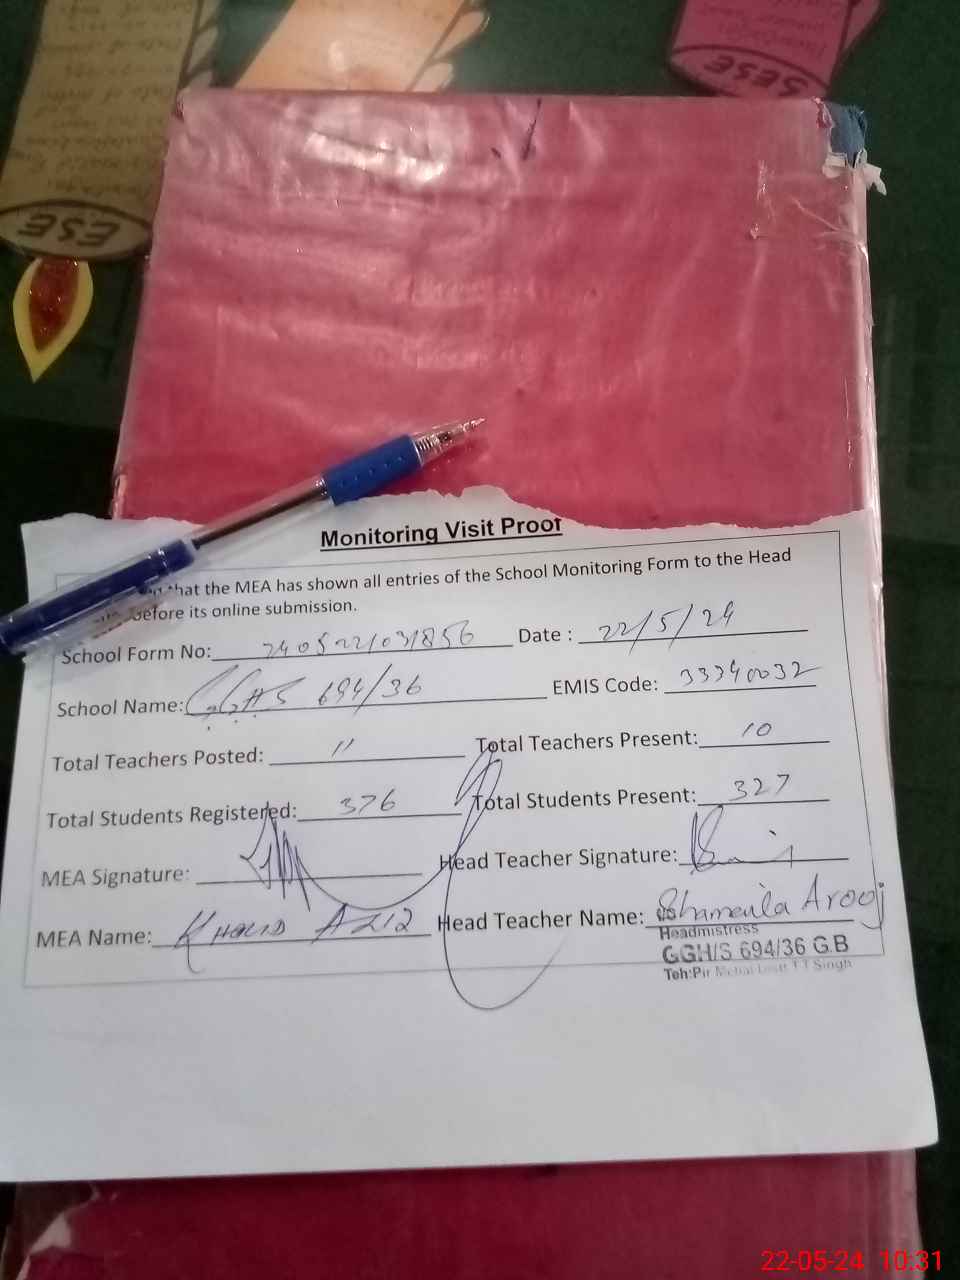 ESE
SESE
Monitoring Visit Proof
that the MEA has shown all entries of the School Monitoring Form to the Head
before its online submission.
School Form No: 240522/031856 Date : 22/5/24
School Name: GGHS 694/36 EMIS Code: 33340032
Total Teachers Posted: 11 Total Teachers Present: 10
Total Students Registered: 376 Total Students Present: 327
MEA Signature: Head Teacher Signature:
MEA Name: KHALID AZIZ Head Teacher Name: Shameila Arooj
Headmistress
GGH/S 694/36 G.B
Teh:Pir Mehal Distt T T Singh
22-05-24 10:31